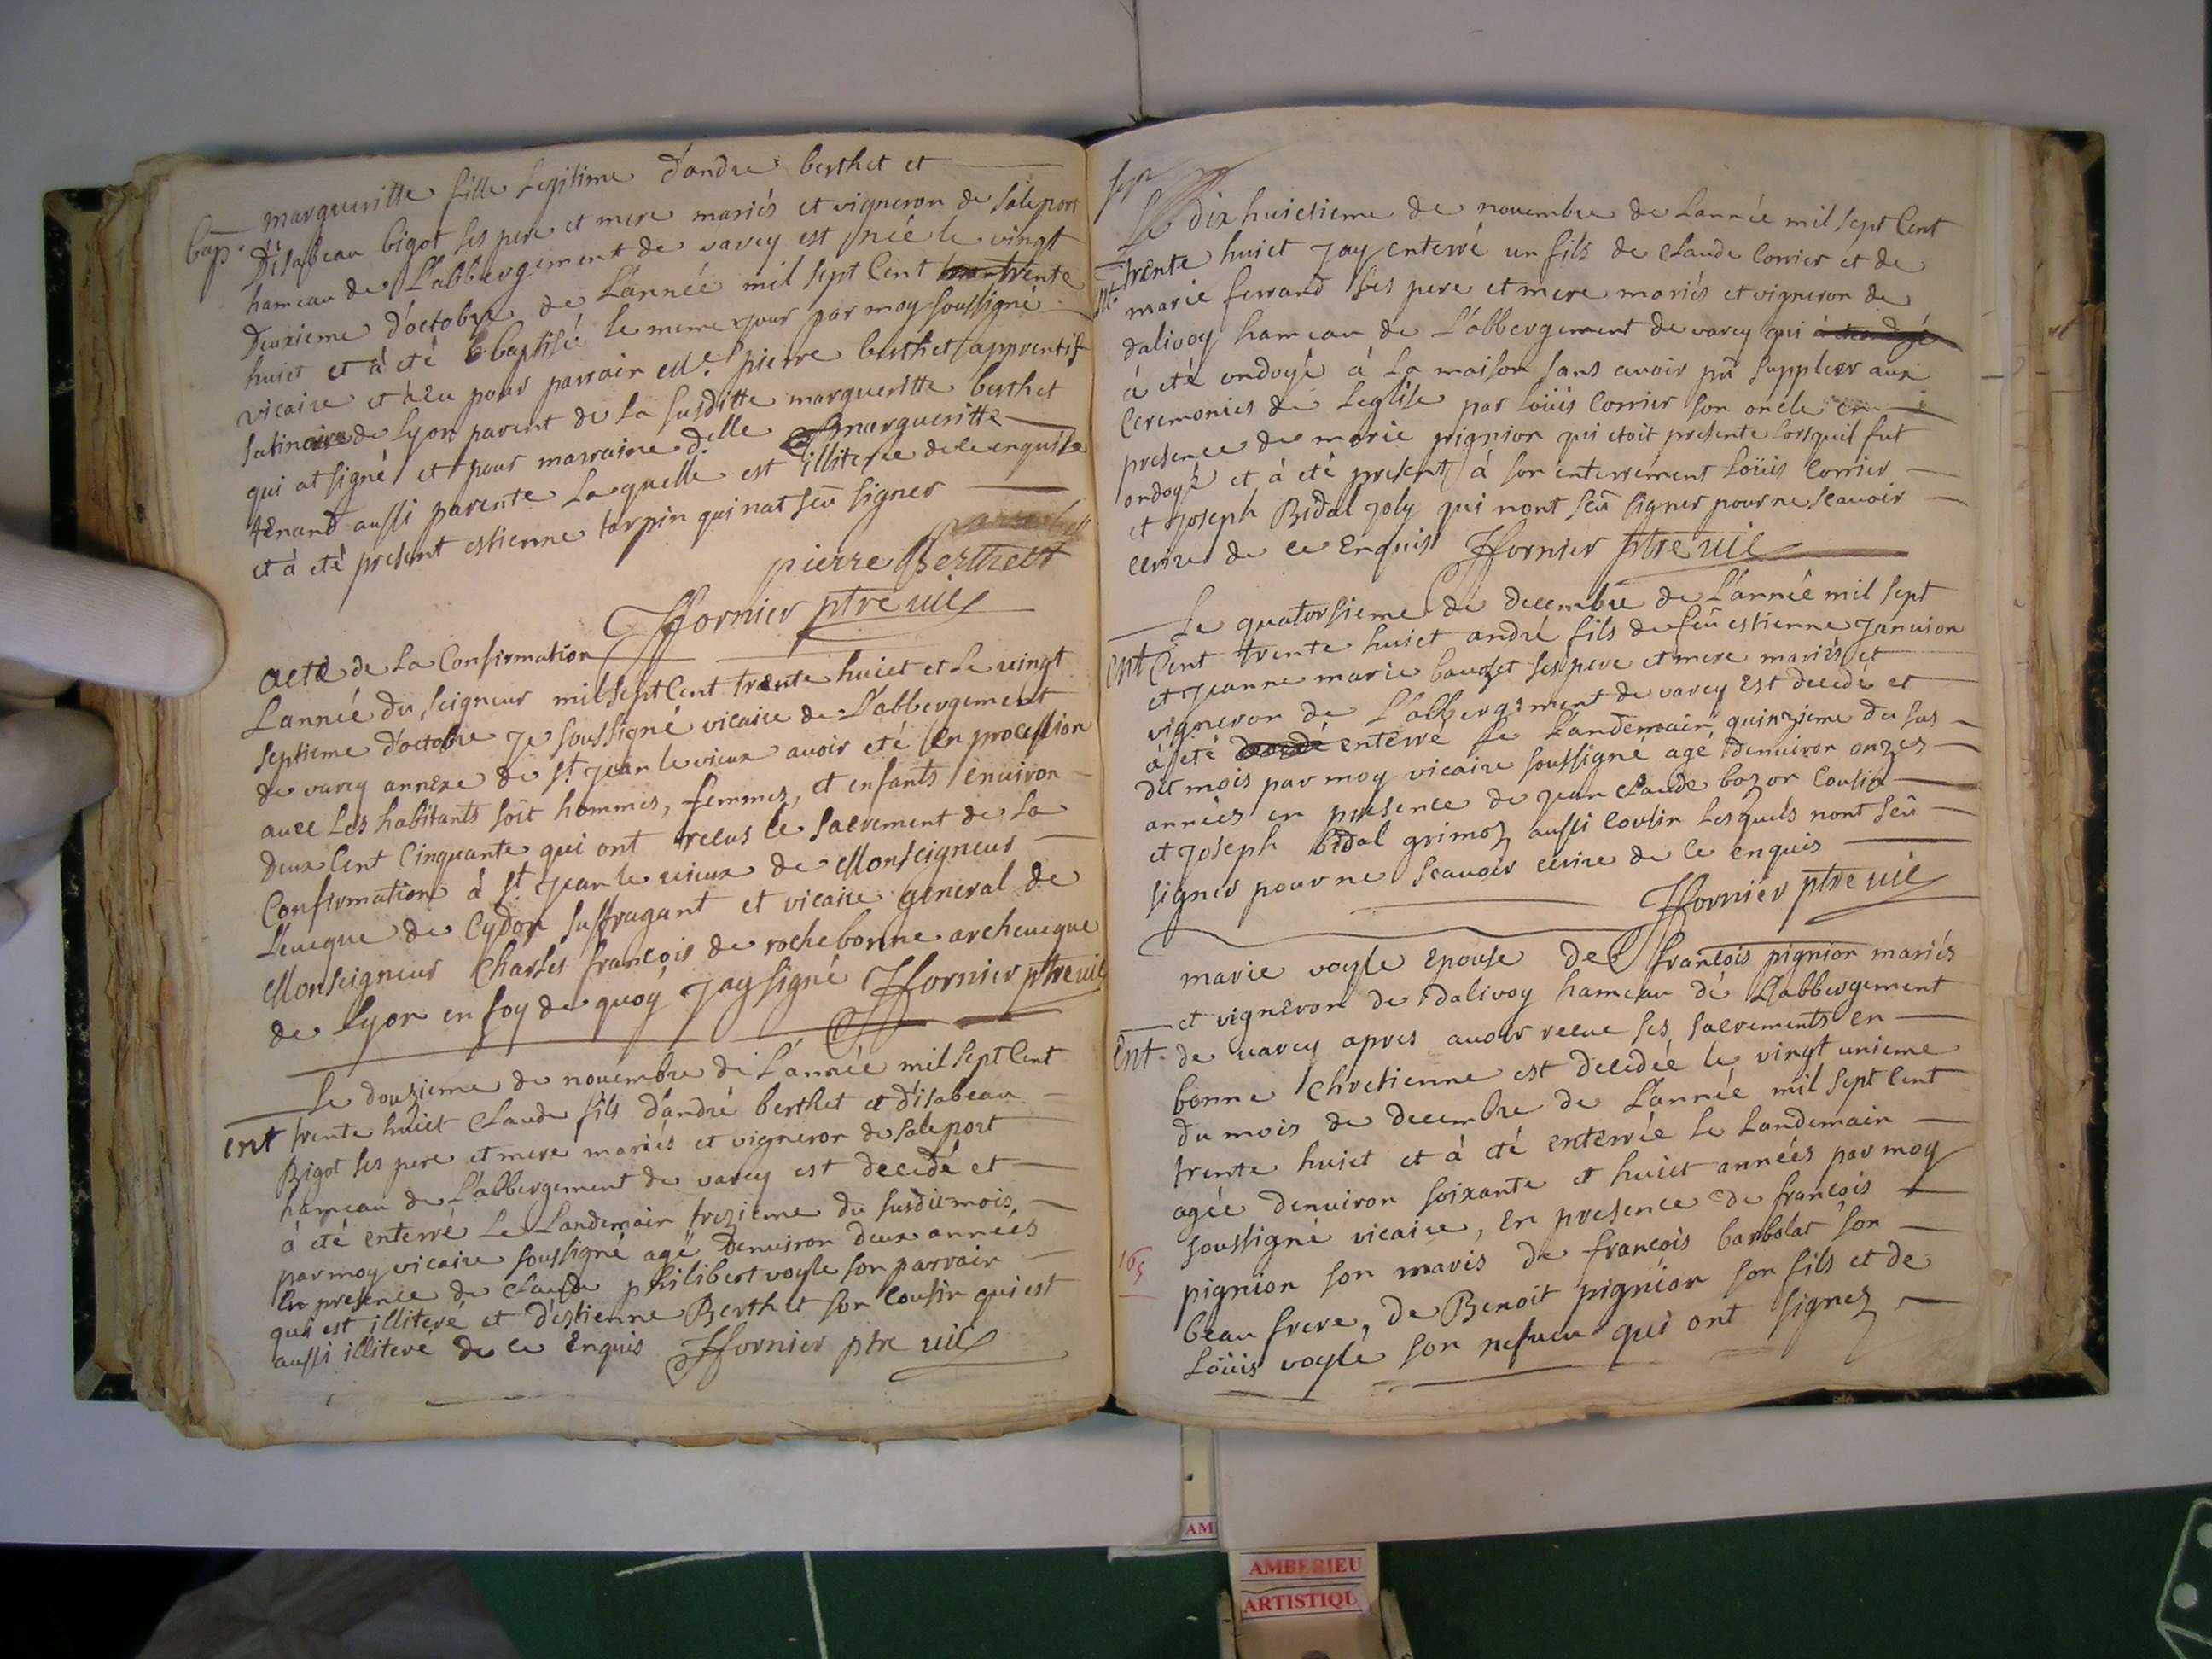 margueritte fille legitime d'andre berthet et
bap. D'isabeau bigot ses pere et mere mariés et vigneron de saleport
hameau de L'abbergement de varey est née le vingt
Deuxieme d'octobre de L'année mil sept Cent trente
huict et à eté baptisée le meme jour par moy soussigné
vicaire et à eu pour parrain Mr. pierre berthet apprentif
satinaire de Lyon parent de la susditte margueritte berthet
qui at signé et pour marraine delle margueritte
tenand aussi parente Laquelle est illiterée de ce enquise
et à eté present estienne torpin qui nat seu signer
pierre Berthett
Hfornier ptre vic
acte de La Confirmation
L'année du seigneur mil sept Cent trente huict et Le vingt
septieme d'octobre Je soussigné vicaire de L'abbergement
de varey annexe de st. Jean le vieux avoir eté en procession
avec Les habitants soit hommes, femmes, et enfants environ
Deux Cent Cinquante qui ont recus le sacrement de la
Confirmation à st. Jean le vieux de Monseigneur
L'eveque de Cydon suffragant et vicaire general de
Monseigneur Charles francois de rochebonne archeveque
de Lyon en foy de quoy Jay signé Hfornier ptre vic
Le douzieme de novembre de L'année mil sept Cent
ent trente huict Claude fils d'andré berthet et d'isabeau
Bigot ses pere et mere mariés et vigneron de saleport
hameau de L'abbergement de varey est decedé et
à eté enterré Le Landemain trezieme du susdit mois
par moy vicaire soussigné agé Denviron deux années
En presence de Claude philibert voyle son parrain
qui est illiteré et d'estienne Berthet son cousin qui est
aussi illiteré de ce Enquis Hfornier ptre vic
Le dix huictieme de novembre de L'année mil sept Cent
trente huict Jay enterré un fils de Claude Corrier et de
marie ferrand ses pere et mere mariés et vigneron de
dalivoy hameau de L'abbergement de varey qui
à eté ondoyé à La maison sans avoir pû suppleer aux
Ceremonies de L'eglise par Loüis Corrier son oncle en
presence de marie pignion qui etoit presente Lorsquil fut
ondoyé et à eté present à son enterrement Loüis Corrier
et Joseph Bidal Joly qui nont seû signer pour ne scavoir
ecrire de ce Enquis Hfornier ptre vic
Le quatorsieme de decembre de L'année mil sept
Ent Cent trente huict andré fils de feû estienne Janvion
et Jeanne marie baudet ses pere et mere mariés et
vigneron de L'abbergement de varey Est decedé et
à eté enterré Le Landemain quinzieme du sus
dit mois par moy vicaire soussigné agé Denviron onzes
années en presence de Jean Claude bozon Cousin
et Joseph bidal grimoz aussi Cousin Lesquels nont seû
signer pour ne scavoir ecrire de Ce enquis
Hfornier ptre vic
marie voyle Epouse de francois pignion mariés
et vigneron de Dalivoy hameau de L'abbergement
Ent. de varey apres avoir receue ses sacrements en
bonne Chretienne est decedée le vingt unieme
du mois de decembre de L'année mil sept Cent
trente huict et à eté enterrée Le Landemain
agée denviron soixante et huict années par moy
soussigné vicaire, En presence de francois
165 pignion son maris de francois barbolat son
beau frere, de Benoit pignion son fils et de
Loüis voyle son nefueu qui ont signez
AM
AMBERIEU
ARTISTIQU